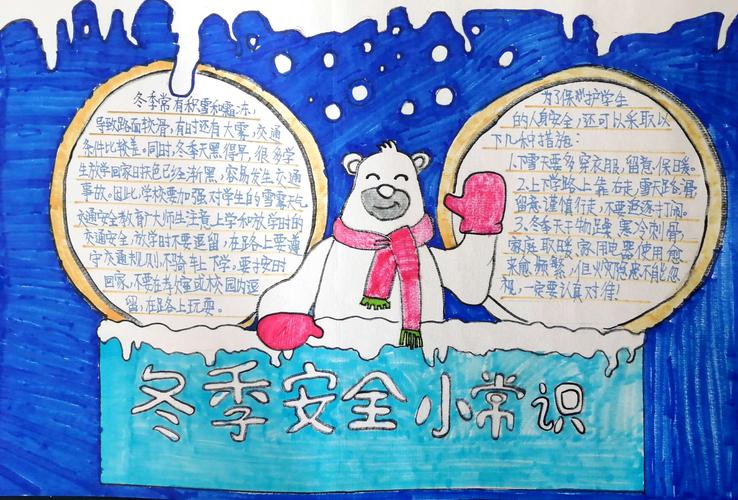 冬季常有积雪和霜冻,
导致路面较滑,有时还有大雾,交通
条件比较差。同时,冬季天黑得早,很多学
生放学回家时天色已经渐黑,容易发生交通
事故。因此,学校要加强对学生的雪雾天气
交通安全教育,广大师生注意上学和放学时的
交通安全,放学时不要逗留,在路上要遵
守交通规则,不骑车上下学,要按时
回家,不要在操场或校园内逗
留,在路上玩耍。
为了保护学生
的人身安全,还可以采取以
下几种措施:
1.下雪天要多穿衣服,留意保暖。
2.上下学路上靠右走,雪天路滑
留意谨慎行走,不要追逐打闹。
3.冬季天干物燥,寒冷刺骨
家庭取暖、家用电器使用愈
来愈频繁,但火灾隐患不能忽
视,一定要认真对待。
冬季安全小常识